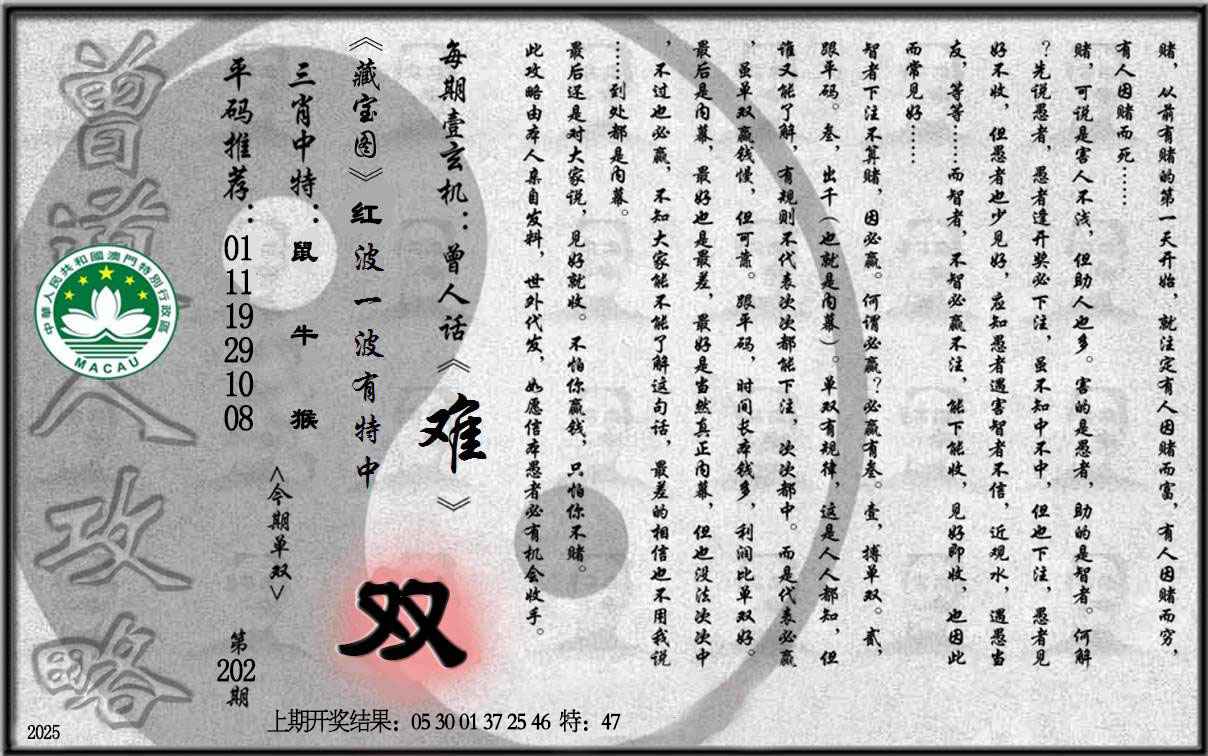 赌，从前有赌的第一天开始，就注定有人因赌而富，有人因赌而穷，
有人因赌而死……
赌，可说是害人不浅，但助人也多。害的是愚者，助的是智者。何解
？先说愚者，愚者逢开奖必下注，虽不知中不中，但也下注，愚者见
好不收，但愚者也少见好，应知愚者遇害智者不信，近观水，遇愚当
友，等等……而智者，不智必赢不注，能下能收，见好即收，也因此
而常见好……
智者下注不算赌，因必赢。何谓必赢？必赢有叁。壹，搏单双。贰，
跟平码。叁，出千（也就是内幕）。单双有规律，这是人人都知，但
谁又能了解，有规则不代表次次都能下注，次次都中。而是代表必赢
，虽单双赢钱慢，但可靠。跟平码，时间长本钱多，利润比单双好。
最后是内幕，最好也是最差，最好是当然真正内幕，但也没法次次中
，不过也必赢，不知大家能不能了解这句话，最差的相信也不用我说
……到处都是内幕。
最后还是对大家说，见好就收。不怕你赢钱，只怕你不赌。
此攻略由本人亲自发料，世外代发，如愿信本愚者必有机会收手。
每期壹玄机：曾人话《难》
《藏宝图》红波一波有特中
双
三肖中特：鼠 牛 猴
<今期单双>
平码推荐：01 11 19 29 10 08
第202期
曾道人攻略
中華人民共和國澳門特別行政區
MACAU
上期开奖结果：05 30 01 37 25 46 特：47
2025